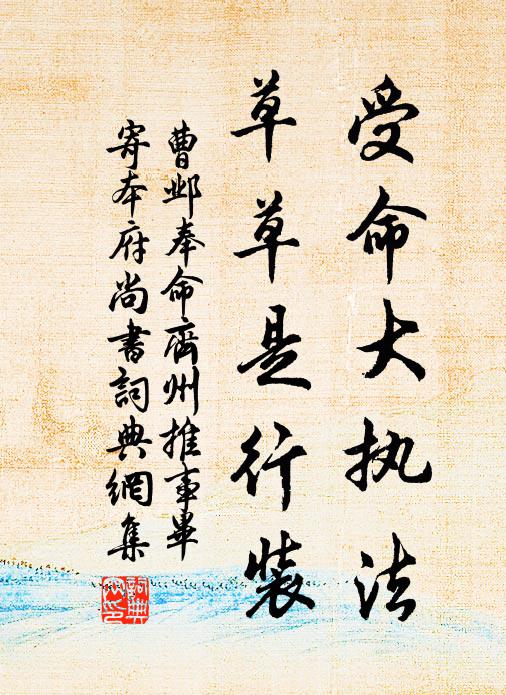 受命大执法
草草是行装
曹邺奉命齐州推事毕
寄本府尚书词典網集